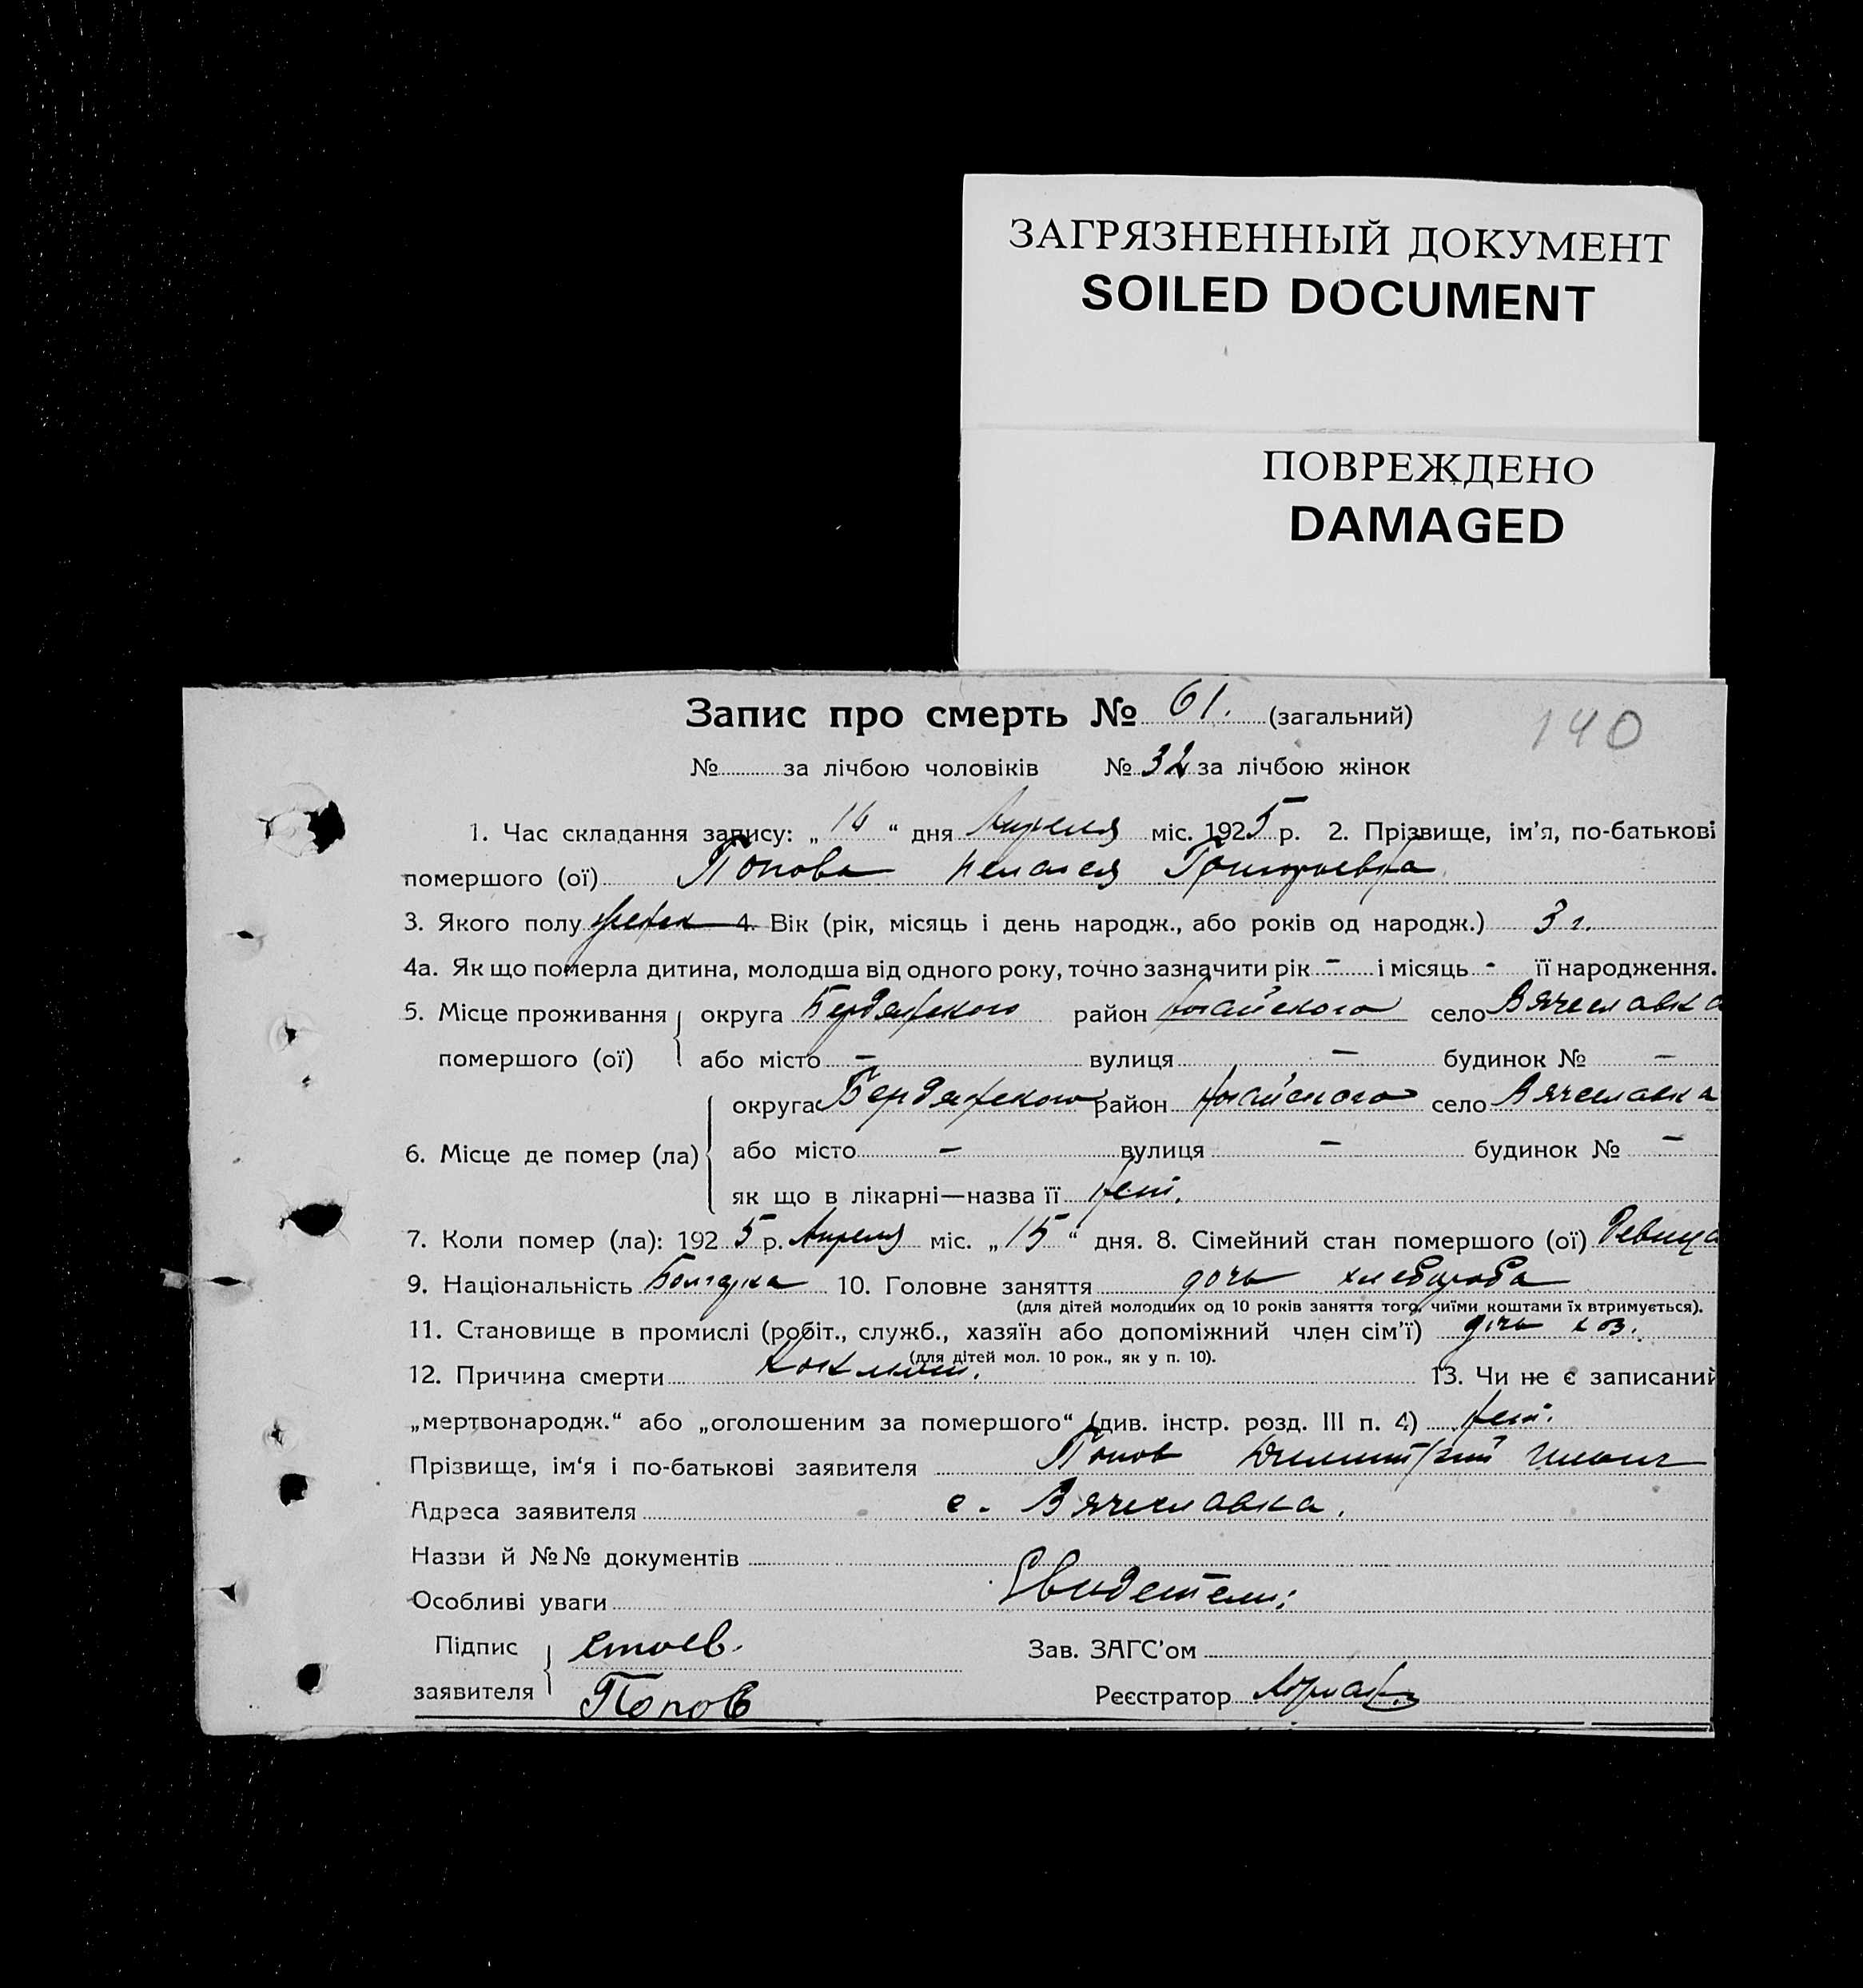 ЗАГРЯЗНЕННЫЙ ДОКУМЕНТ
SOILED DOCUMENT
ПОВРЕЖДЕНО
DAMAGED
Запис про смерть № 61. (загальний)
140
№ за лічбою чоловіків № 32 за лічбою жінок
1. Час складання запису: „16“ дня Апреля міс. 1925 р. 2. Прізвище, ім'я, по-батькові
помершого (ої) Попова Пелагея Григорьевна
3. Якого полу женск 4. Вік (рік, місяць і день народж., або років од народж.) 3 г.
4а. Як що померла дитина, молодша від одного року, точно зазначити рік – і місяць - її народження.
5. Місце проживання округа Бердянского район Ногайского село Вячеславка
помершого (ої) або місто – вулиця – будинок № –
округа Бердянского район Ногайского село Вячеславка
6. Місце де помер (ла) або місто – вулиця – будинок № –
як що в лікарні—назва її нет.
7. Коли помер (ла): 1925 р. Апреля міс. „15“ дня. 8. Сімейний стан помершого (ої) Девица
9. Національність Болгарка 10. Головне заняття дочь хлебороба
(для дітей молодших од 10 років заняття того, чиїми коштами їх втримується).
11. Становище в промислі (робіт., служб., хазяїн або допоміжний член сім'ї) дочь хоз.
(для дітей мол. 10 рок., як у п. 10).
12. Причина смерти Коклюш. 13. Чи не є записаний
„мертвонародж.“ або „оголошеним за помершого“ (див. інстр. розд. III п. 4) нет.
Прізвище, ім'я і по-батькові заявителя Попов Димитрий
Адреса заявителя с. Вячеславка.
Назви й №№ документів
Особливі уваги Свидетели:
Підпис Стоев. Зав. ЗАГС'ом
заявителя Попов Реєстратор